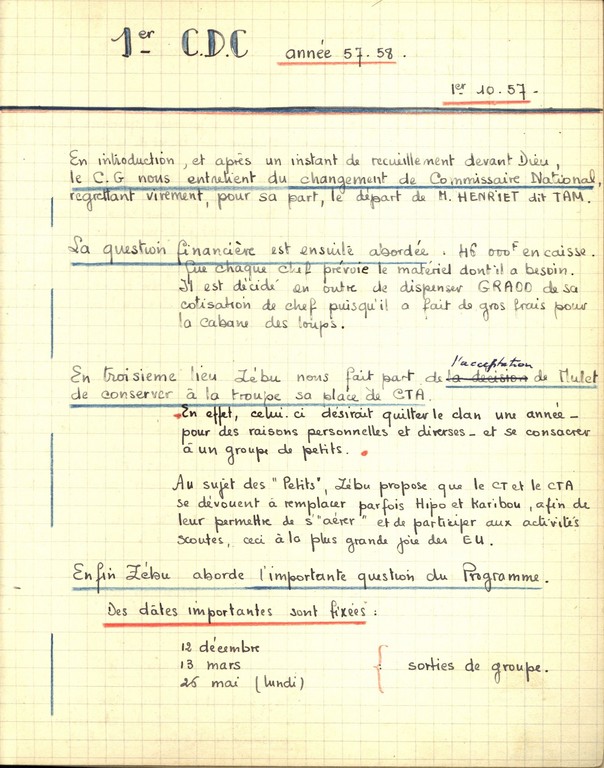 1er C.D.C année 57.58.
1er 10.57-
En introduction, et après un instant de recueillement devant Dieu,
le C.G nous entretient du changement de Commissaire National,
regrettant virement, pour sa part, le départ de M. HENRIET dit TAM.
La question financière est ensuite abordée. 46 000F en caisse.
Que chaque chef prévoie le matériel dont il a besoin.
Il est décidé en outre de dispenser GRADO de sa
cotisation de chef puisqu'il a fait de gros frais pour
la cabane des loups.
l'acceptation
En troisieme lieu Zébu nous fait part de la decision de Mulet
de conserver à la troupe sa place de CTA.
En effet, celui.ci désirait quitter le clan une année -
pour des raisons personnelles et diverses - et se consacrer
à un groupe de petits.
Au sujet des "Petits", Zébu propose que le CT et le CTA
se dévouent à remplacer parfois Hipo et Karibou, afin de
leur permettre de s'"aérer" et de participer aux activités
scoutes, ceci à la plus grande joie des EU.
Enfin Zébu aborde l'importante question du Programme.
Des dâtes importantes sont fixées :
12 décembre
13 mars
26 mai (lundi)
sorties de groupe.